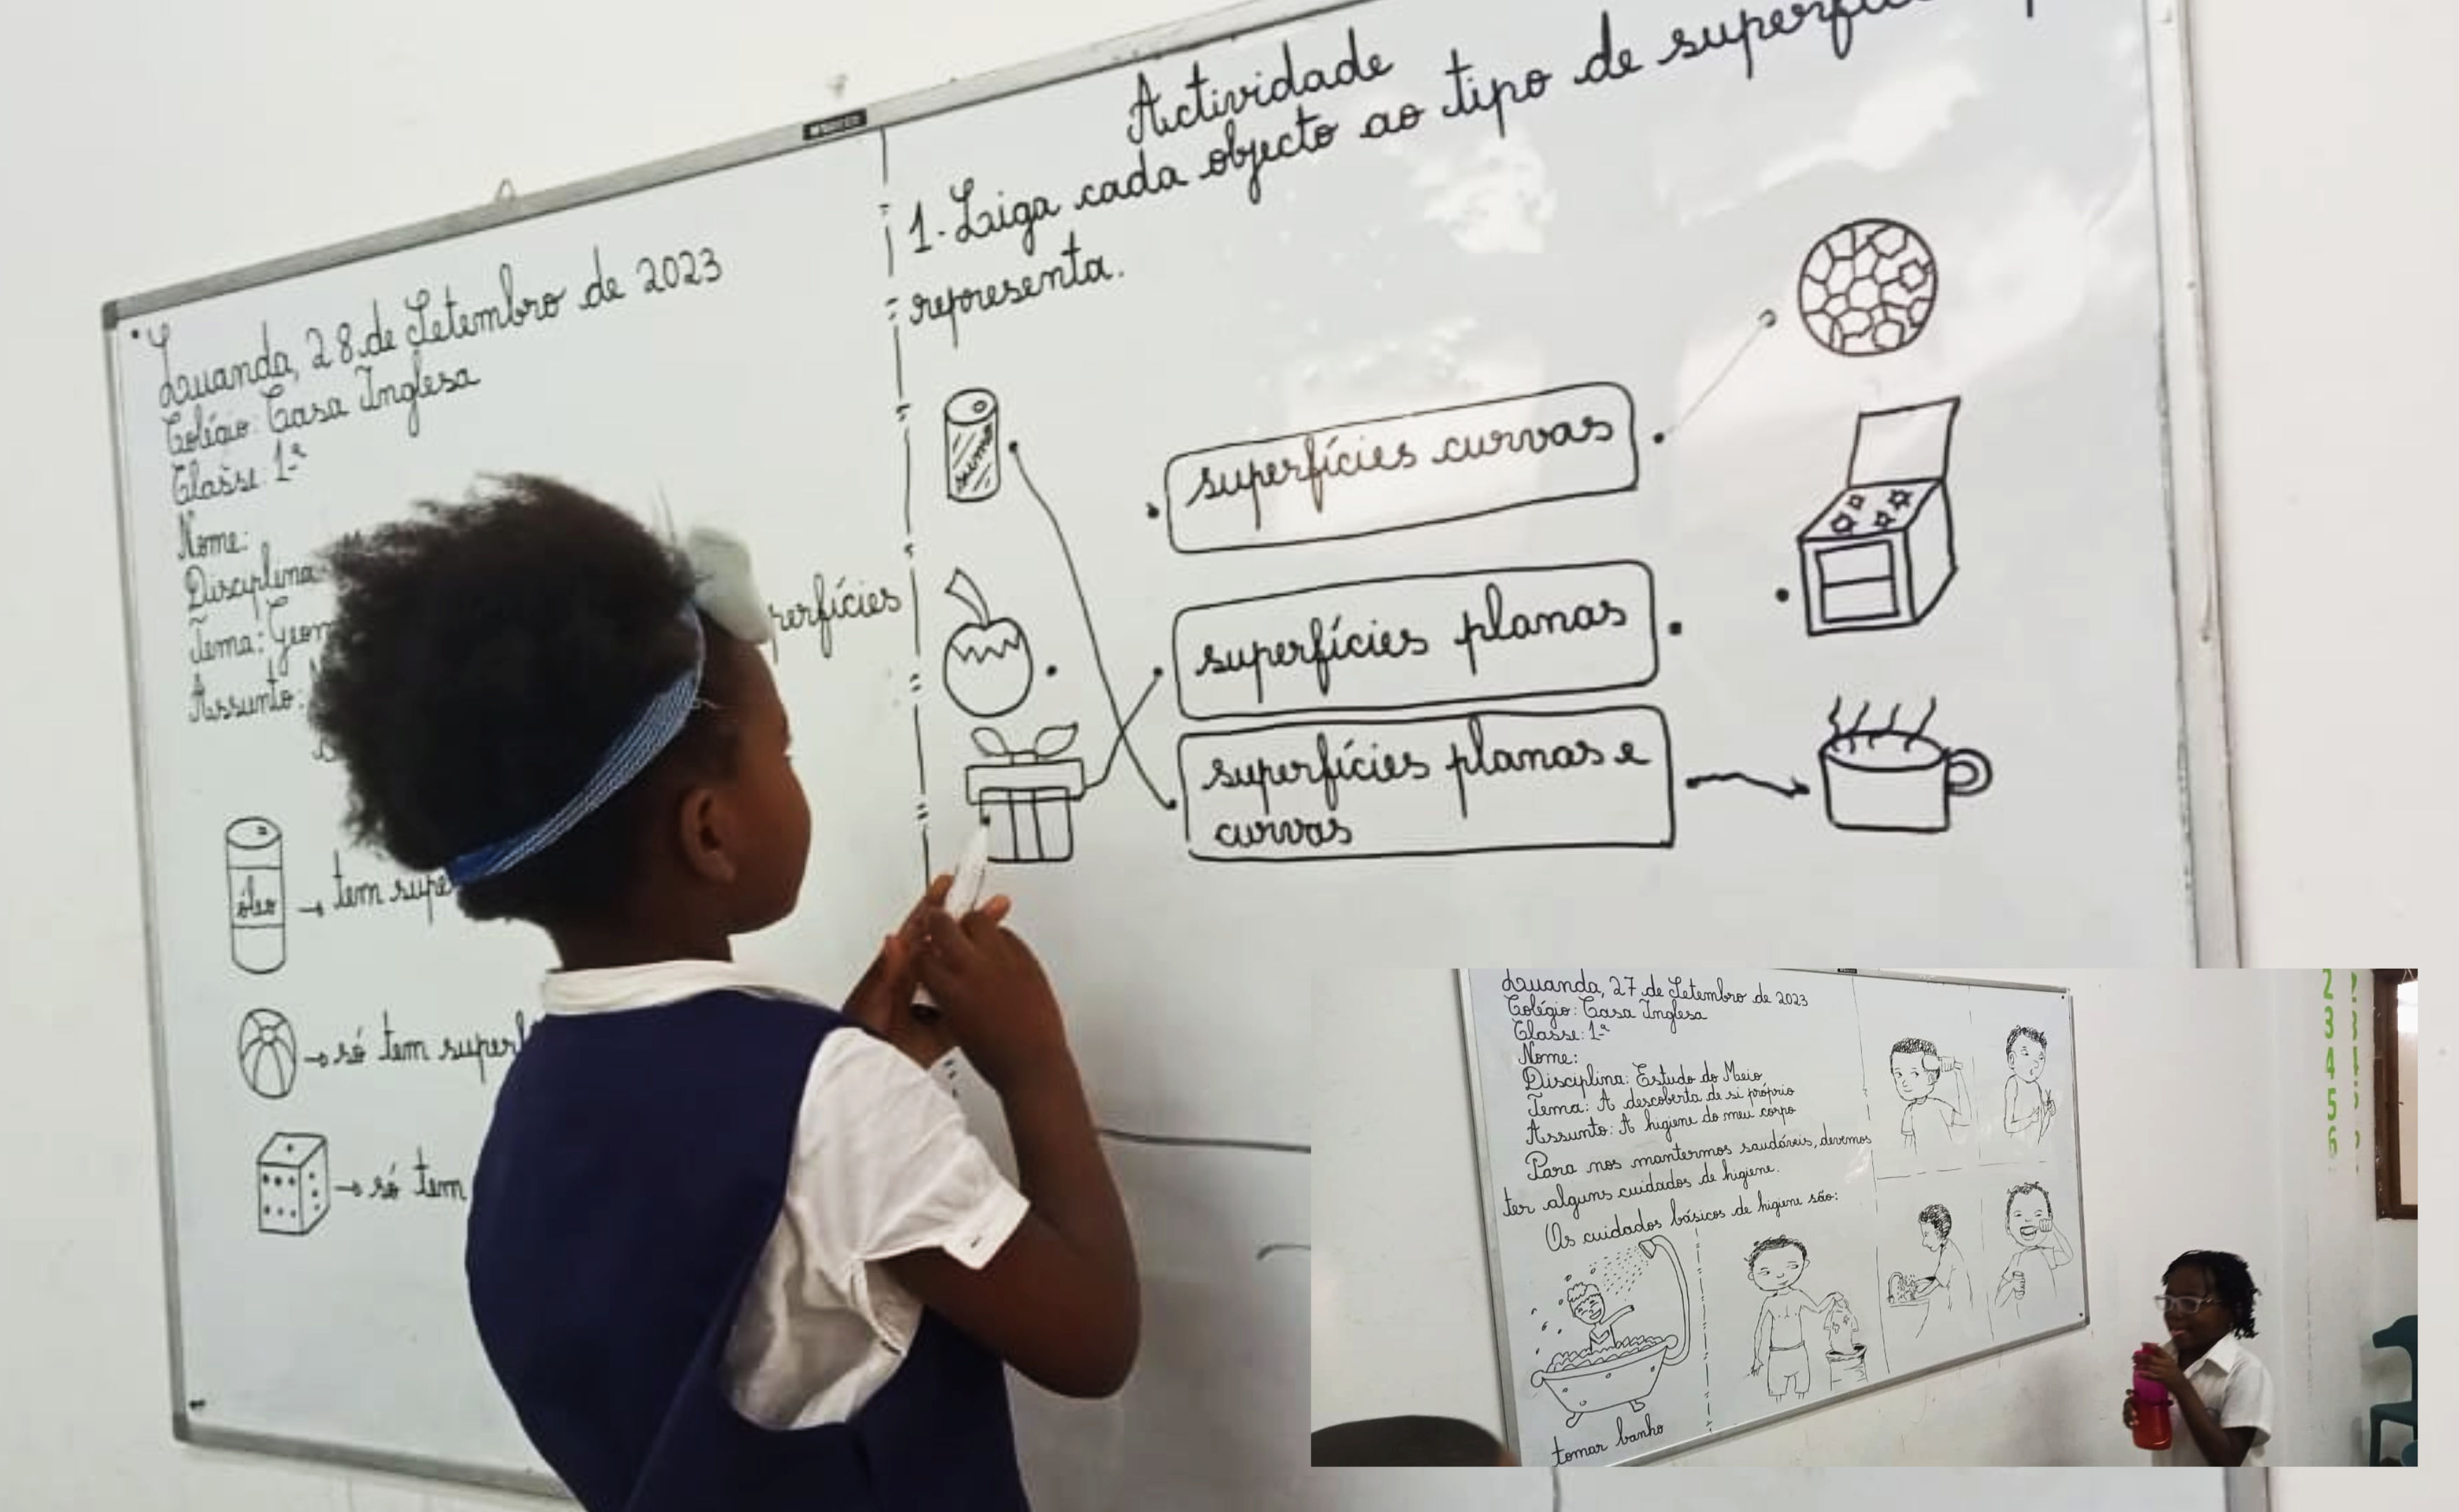 Luanda, 28 de Setembro de 2023
Colégio: Casa Inglesa
Classe: 1ª
Nome:
Disciplina
Tema:
Assunto:
óleo
tem
só tem
só tem
Actividade
1. Liga cada objecto ao tipo de
representa.
sumo
superfícies curvas
superfícies planas
superfícies planas e
curvas
Luanda, 27 de Setembro de 2023
Colégio: Casa Inglesa
Classe: 1ª
Nome:
Disciplina: Estudo do Meio
Tema: A descoberta de si próprio
Assunto: A higiene do meu corpo
Para nos mantermos saudáveis, devemos
ter alguns cuidados de higiene.
Os cuidados básicos de higiene são:
tomar banho
2
3
4
5
6